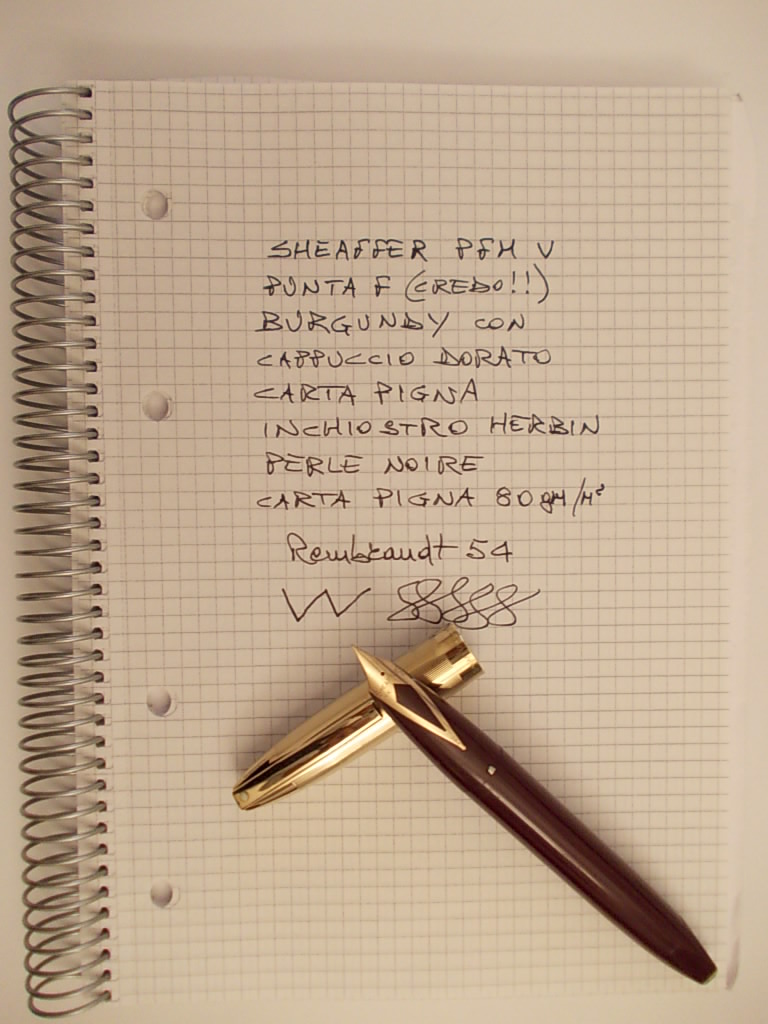 SHEAFFER PFM V
PUNTA F (CREDO!!)
BURGUNDY CON
CAPPUCCIO DORATO
CARTA PIGNA
INCHIOSTRO HERBIN
PERLE NOIRE
CARTA PIGNA 80 gM/M²
Rembrandt 54